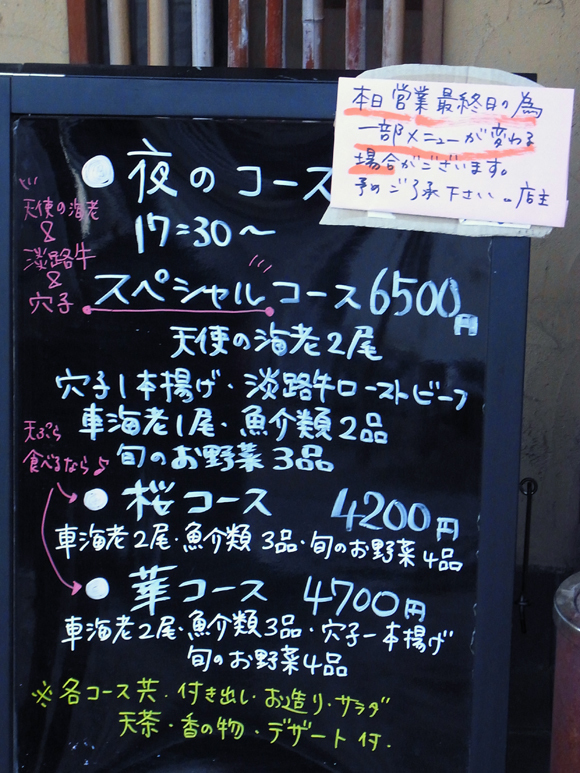 本日営業最終日の為
一部メニューが変わる
場合がございます。
予めご了承下さい。店主
●夜のコース
17:30〜
天使の海老
&
淡路牛
&
穴子
スペシャルコース6500円
天使の海老2尾
穴子1本揚げ・淡路牛ローストビーフ
車海老1尾・魚介類2品
旬のお野菜3品
天ぷら
食べるなら♪
●桜コース 4200円
車海老2尾・魚介類3品・旬のお野菜4品
●華コース 4700円
車海老2尾・魚介類3品・穴子一本揚げ
旬のお野菜4品
※各コース共・付き出し・お造り・サラダ
天茶・香の物・デザート付.